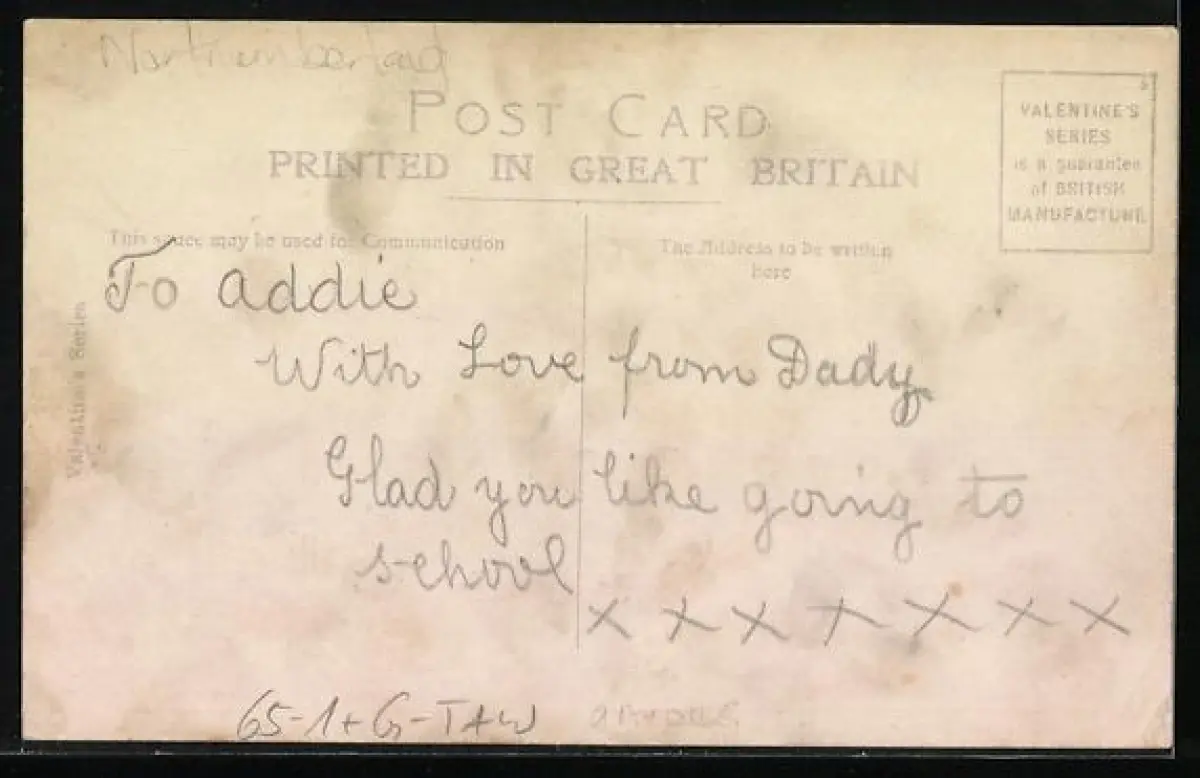 Northumberland
POST CARD
PRINTED IN GREAT BRITAIN
VALENTINE'S
SERIES
is a guarantee
of BRITISH
MANUFACTURE
This space may be used for Communication
The Address to be written
here
Valentine's Series
To Addie
With Love from Dady
Glad you like going to
school
x x x x x x x
65-1+G-TAW